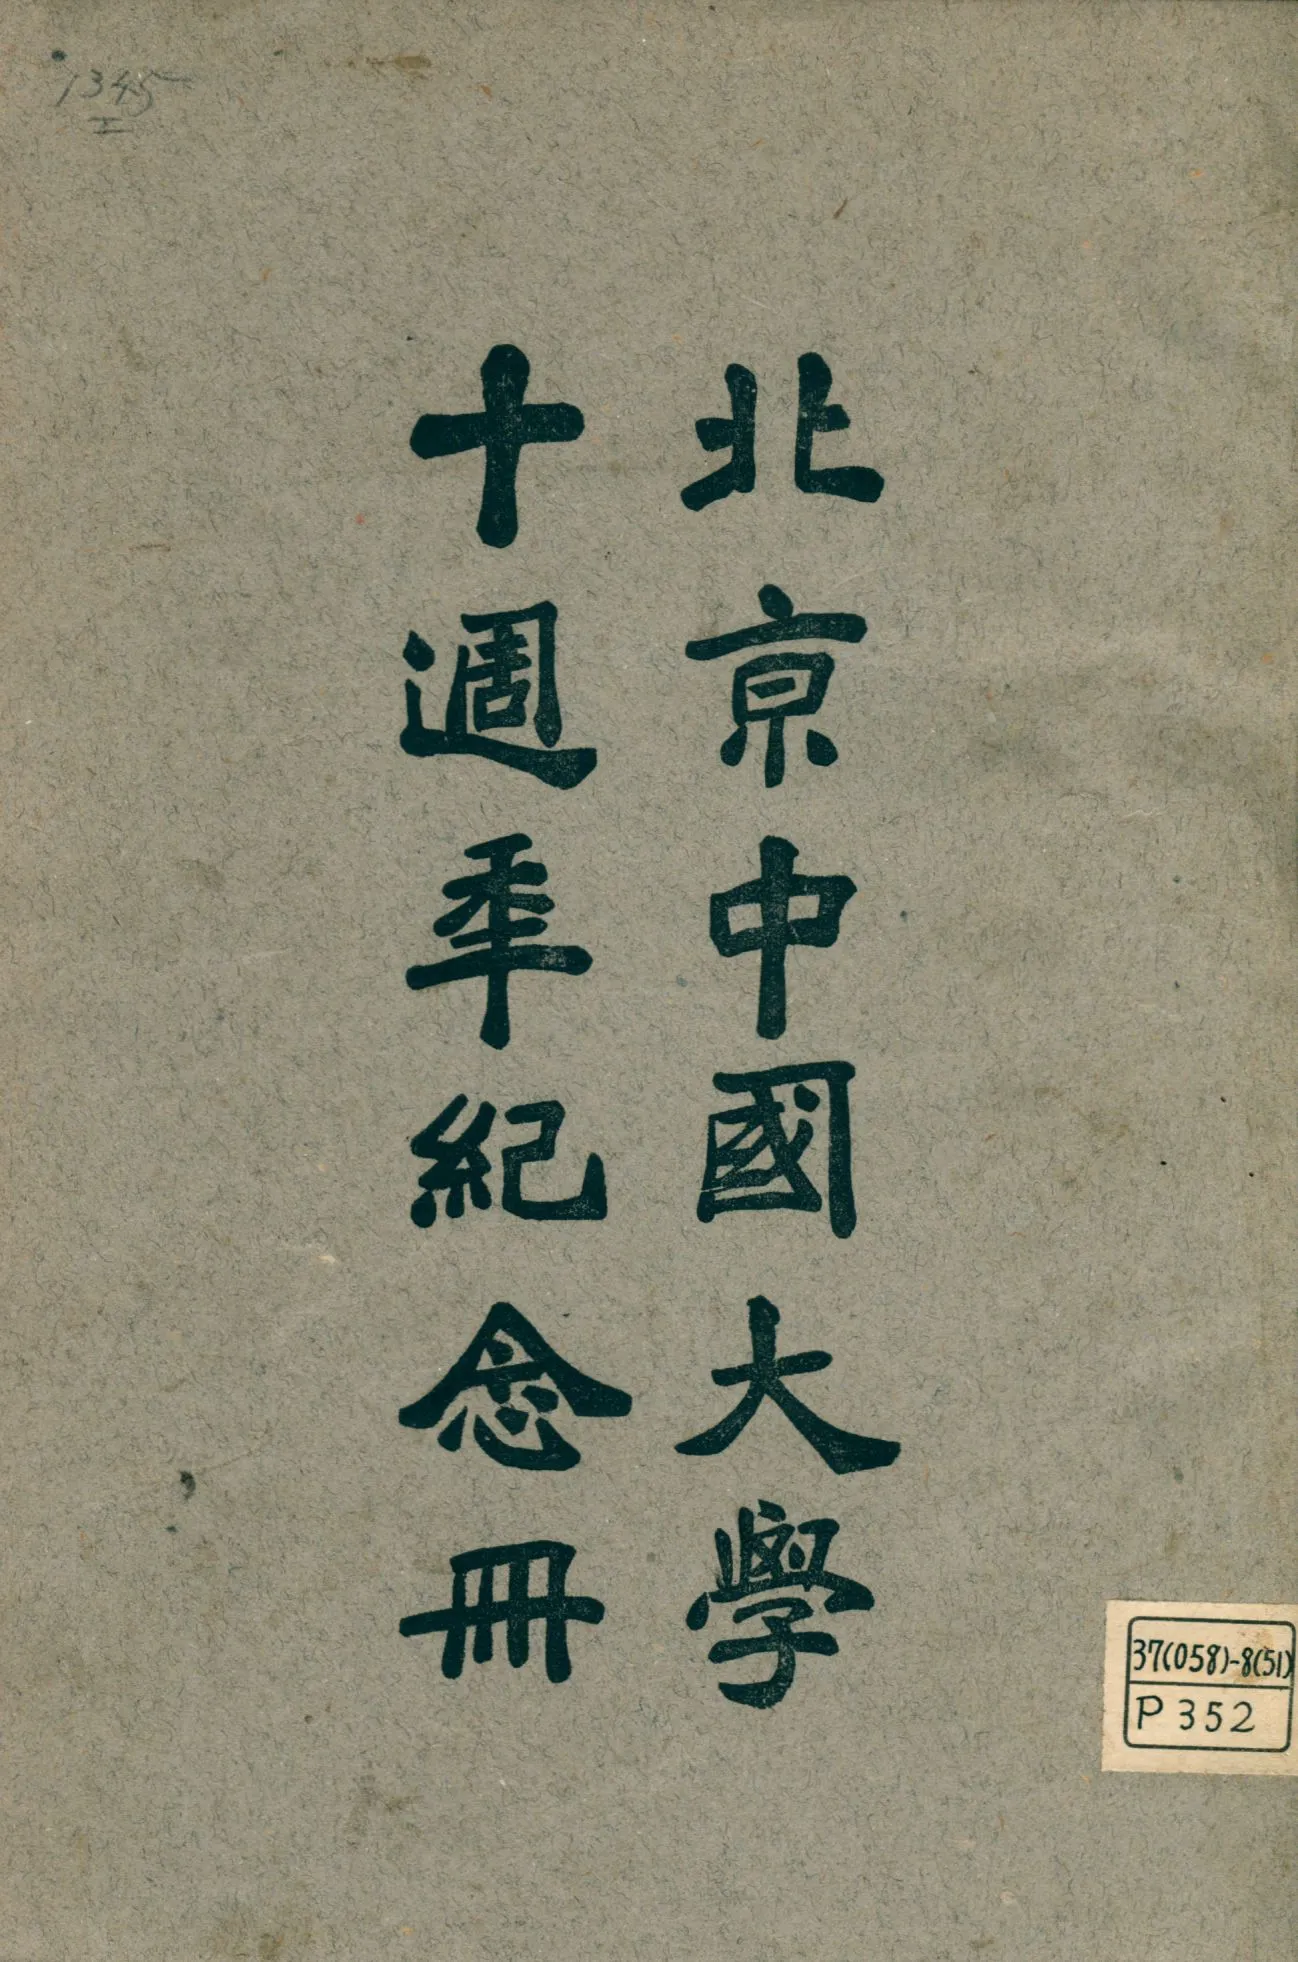 1345
北京中國大學
十週年紀念冊
37(058)-8(51)
P352